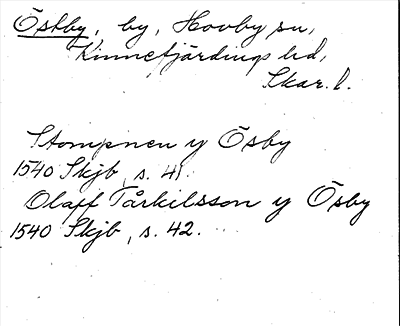 Östby, by, Hovby sn,
Kinnefjärdings hd,
Skar. l.
Stompnen y Ösby
1540 Skjb, s. 41.
Olaff Tårkilsson y Ösby
1540 Skjb, s. 42.